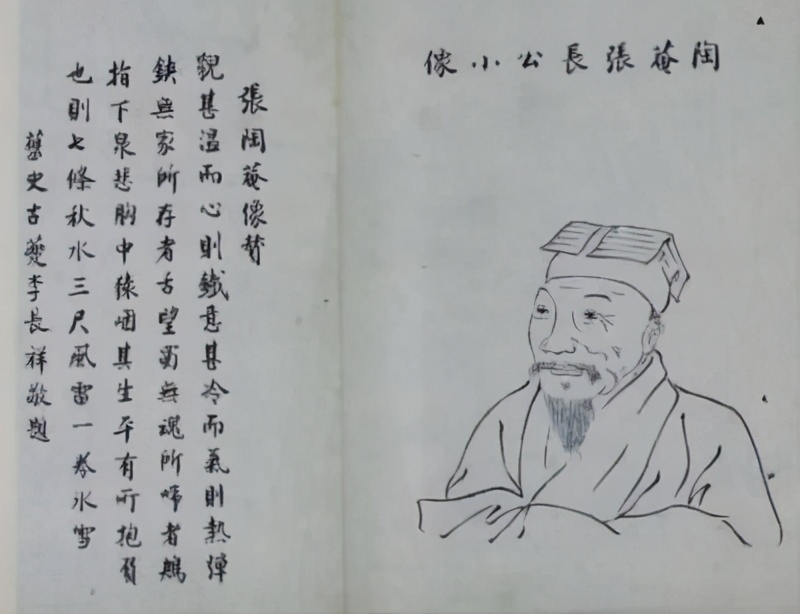 陶菴張長公小像
張陶菴像贊
貌甚溫而心則鐵意甚冷而氣則熱彈
鋏無家所存者舌望蜀無魂所啼者鵑
指下泉悲胸中咽其生平有所抱負
也則七條秋水三尺風雷一卷冰雪
舊史古夔李長祥敬題